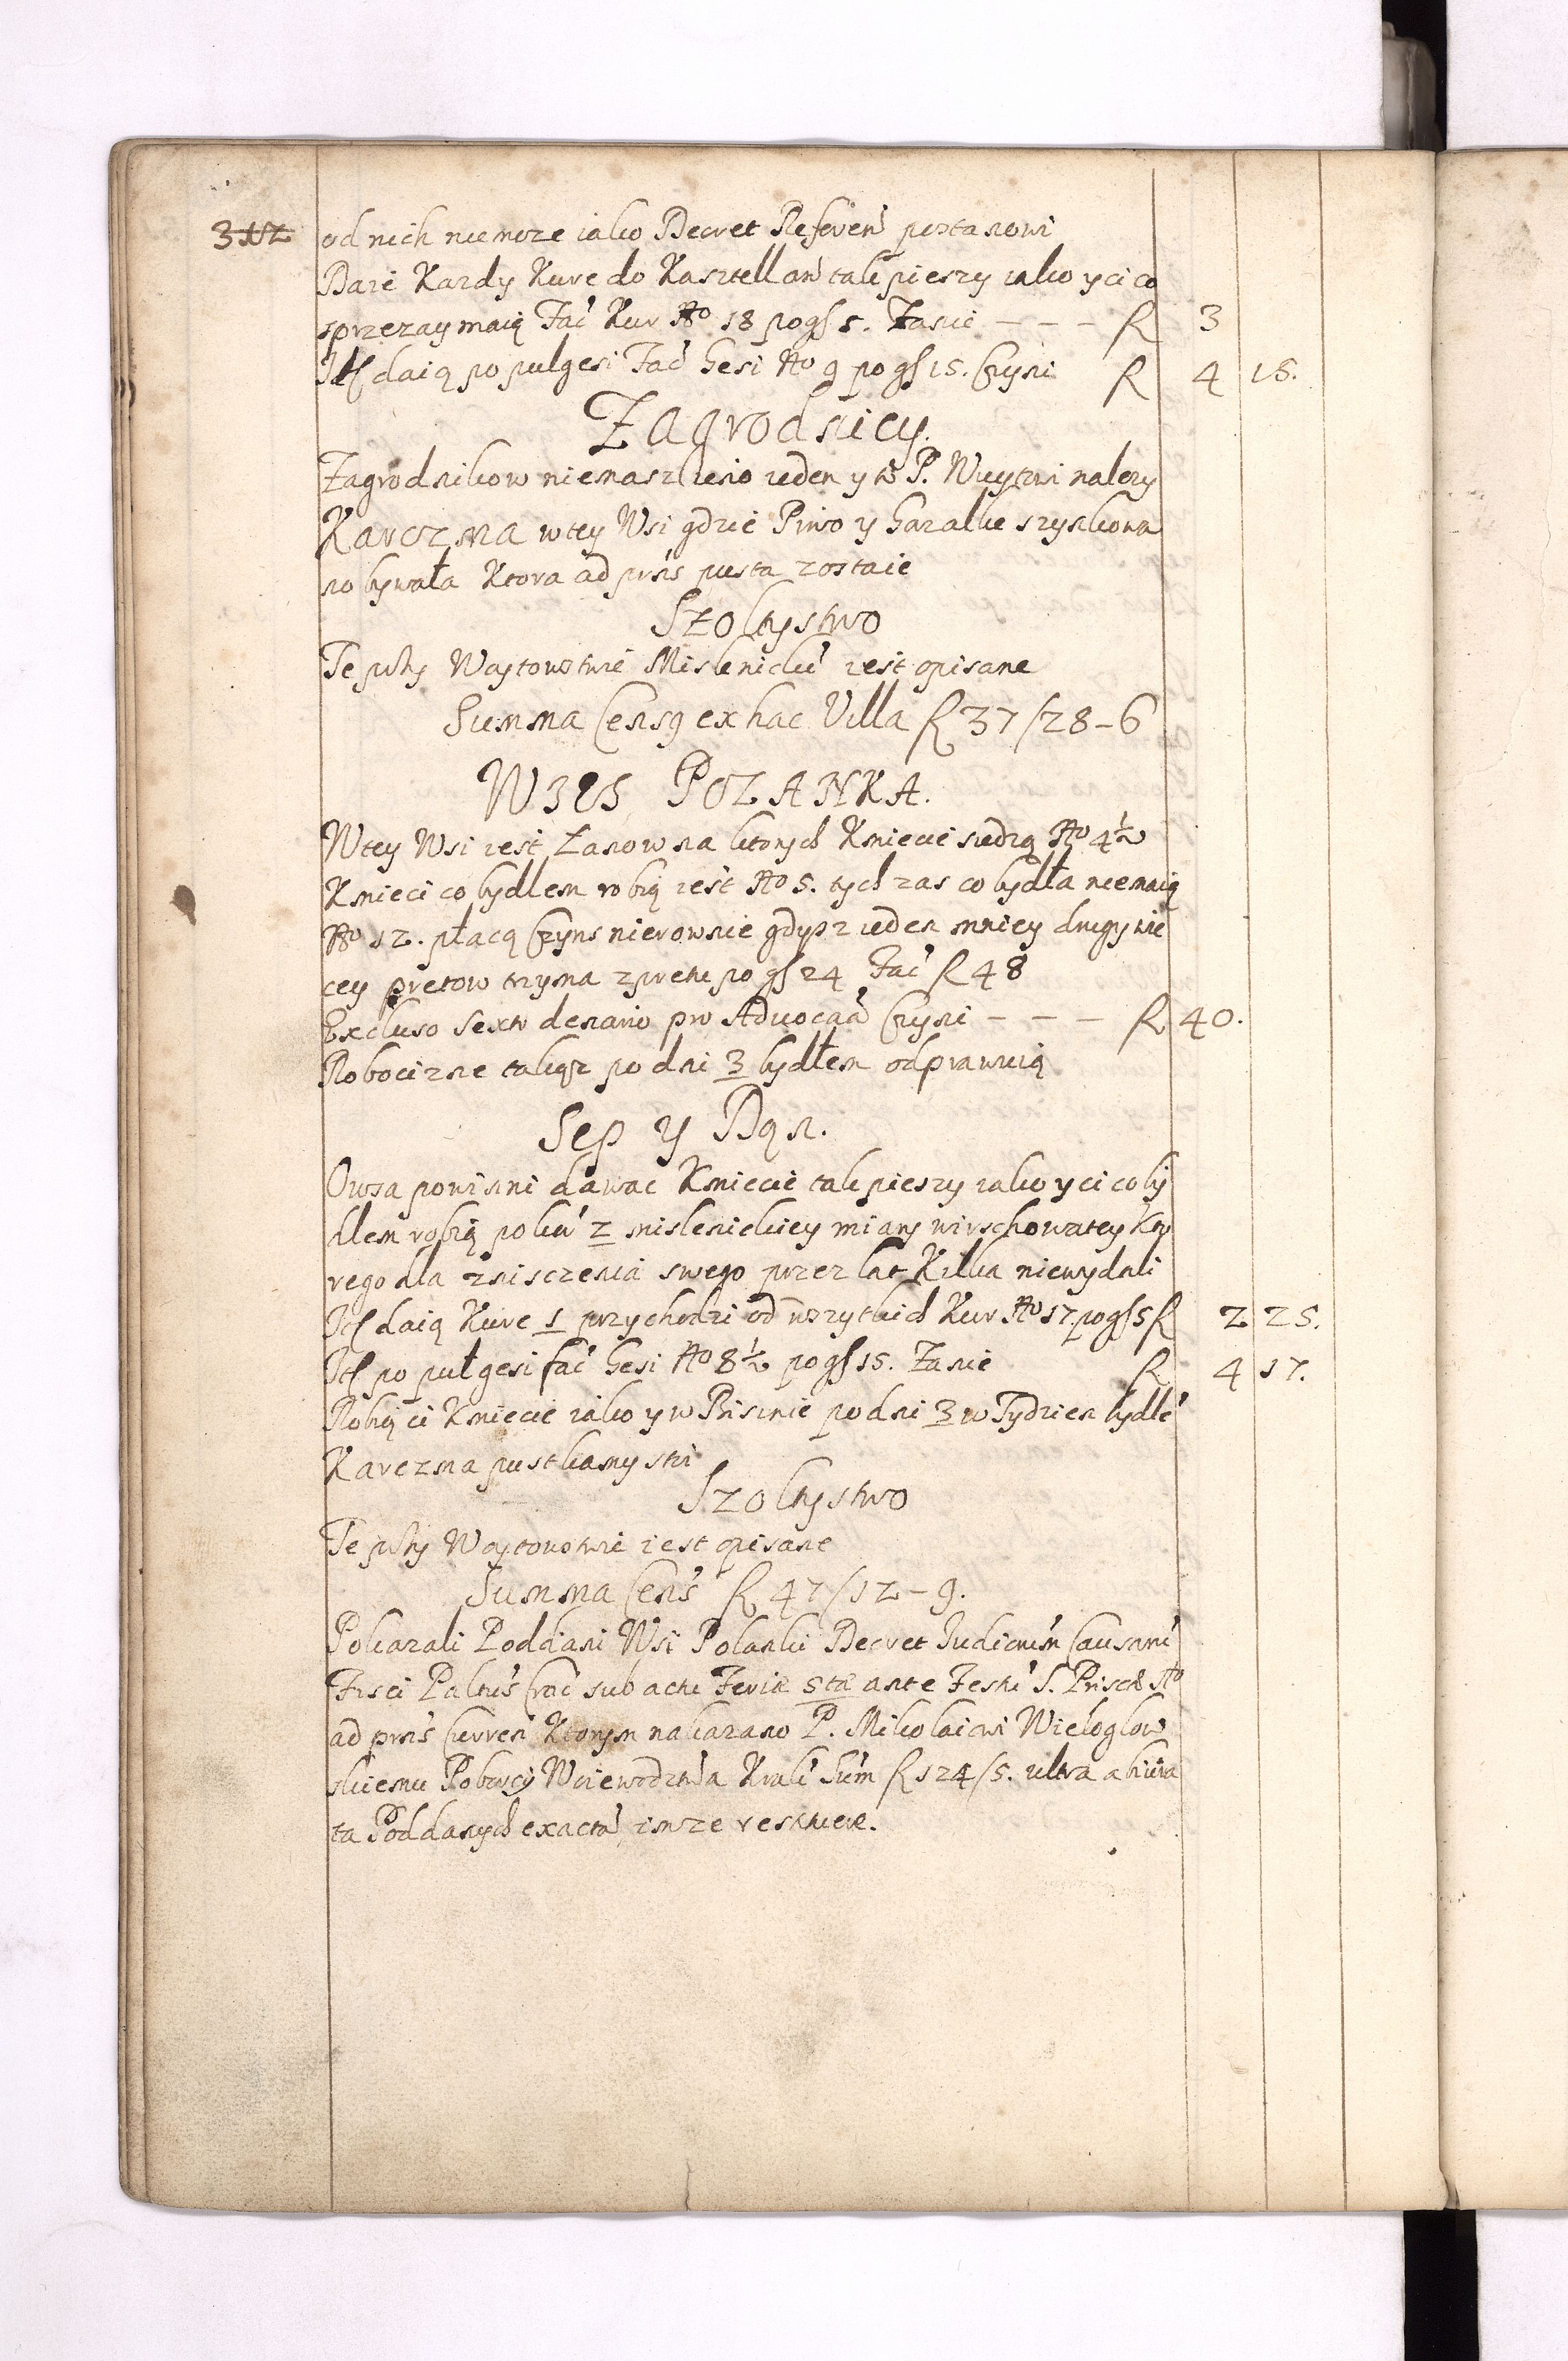 od nich niemoze iako Decret Referen postanowi
Daie Kazdy Kure do Kasztellan tak pieszy iako y ci co
sprzezay maią Fac Kur No 18 po gſ 5. Zasie — — — R 3
Itſ daią po pulgesi Fac Gesi No 9 po gſ 15. Czyni R 4 15.
Zagrodnicy.
Zagrodnikow niemasz ieno ieden y to P. Wuytowi nalezy
Karczma wtey Wsi gdzie Piwo y Gorzalke szynkowa
no bywała Ktora ad prns pusta zostaie
Szoltystwo
Te przy Woytowtwie Mislenickie iest opisane
Summa Cens9 ex hac Villa R 37/28–6
WIES POLANKA.
Wtey Wsi iest Lanow na ktorych Kmiecie siedzą No 4½
Kmieci co bydlem robią iest No 5. tych zas co bydła nie maią
No 12. płacą Czyns nierownie gdysz ieden mniey drugy wie
cey pretow trzyma z pretu po gſ 24 Fac R 48
Excluso Sexto denario pro Advocato Czyni — — — R 40.
Robocizne takąz po dni 3 bydłem odprawuią
Sep y Dan.
Owsa powinni dawac Kmiecie tak pieszy iako y ci co by
dlem robią po kor 2 mislenickiey miary wirschowatey Kto
rego dla znisczenia swego przez lat Kilka niewydali
Itſ daią Kure 1 przychodzi od wszytkich Kur No 17. po gſ 5 R 2 25.
Itſ po pułgesi fac Gesi No 8½ po gſ 15. Zasie R 4 17.
Robią ci Kmiecie iako y w Brsinie po dni 3 w Tydzien bydle
Karczma pustkamy stoi
Szoltystwo
Te przy Woytowtwie iest opisane
Summa Cens R 47/12–9.
Pokazali Poddani Wsi Polanki Decret Iudiciium Causarum
Fisci Paltus Crac sub actu Feria 5ta ante Festu S. Priscæ No
ad prns Curren Ktorym nakazano P. Mikolaiowi Wieloglow
skiemu Poborcy Woiewodztwa Krak Sum R 124/5. ultra abiura
ta Poddanych exacta restituere.